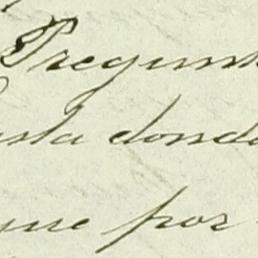 Pregunt
asta donde
ue por